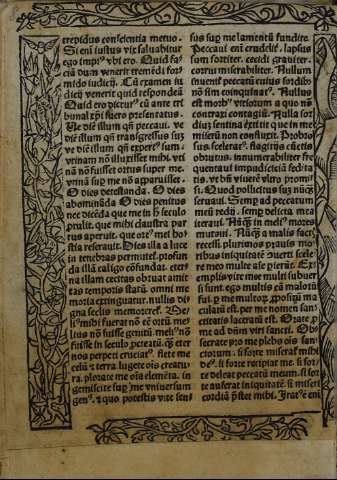 trepidus conscientia metuo.
Si eni iustus vix saluabitur
ego impiꝰ vbi ero. Quid fa
ciā dum venerit tremēdi for
mido iudicij. Cū examen iu
dicij venerit quid respondeā
Quid ero dicturꝰ cū ante tri
bunal xp̄i fuero presentatus.
Ve die illum qn̄ peccaui. ve
die illum qn̄ transgressus suꝫ
ve die illum qn̄ expertꝰ sum.
vtinam non illuxisset mihi. vti
nā nō fuisset ortus super me.
vtinā suꝑ me nō apparuisset.
O dies detestanda. O dies
abomināda O dies penitus
nec dicēda que me in h̄ seculo
protulit. que mihi claustra par
tus aperuit. que
reserauit. Dies illa a luce
in tenebras permutet. profun
da illā caligo cōfundat. eter
na illam cecitas obruat amit
tat temporis statū. omni me
moria extinguatur. nullis dig
na seclis memoret.
lius mihi fuerat nō
nō fuisse genitū
fuisse in seculo ꝓcreatū. ꝙ̄ eter
nos perpeti cruciatꝰ. flete me
celū ⁊ terra. lugete oīs creatu
ra. plorate me oīa elemēta. in
gemiscite suꝑ me vniuersum
genꝰ. ⁊ quo potestis vite sen
sus suꝑ me lamentū fundite.
Peccaui eni crudelit̄. lapsus
sum fortiter. cecidi grauiter.
corrui miserabiliter. Nullum
inueni peccatū cuius sordibꝰ
nō sim coinquinatꝰ. Nullus
est morbꝰ vitiorum a quo nō
contraxi contagiū. Nulla sor
diuꝫ sentina extitit que in me
miserū non confluxit. Probro
sus. sceleratꝰ. flagitijs cūctis
obrutus. innumerabiliter fre
quentaui impudicicia fedita
tis. vt bn̄ viuere vltra promi
si. Quod pollicitus suꝫ nūqꝫ
seruaui. Semꝑ ad peccatum
meū redij. semꝑ delicta mea
iteraui. Nūqꝫ in meliꝰ mores
mutaui. Nūqꝫ a malis factis
recessi. plurimos prauis mo
ribus iniquitate
re meo multe aīe pierūt. Ex
emplis vite mee multi subuer
si sunt. ego multis cā malorū
fui. ꝑ me multoꝝ ꝓpositū ma
culatū est. per me nomen san
ctitatis laceratū est. Orate ꝓ
me ad dn̄m viri sancti. Ob
secrate pro me plebs oīs san
ctorum. si forte misereat mihi
dsꝰ. si forte recipiat me. si for
te deleat peccatū meum. si for
te auferat iniquitatē. si miseri
cordiā p̄stet mihi.